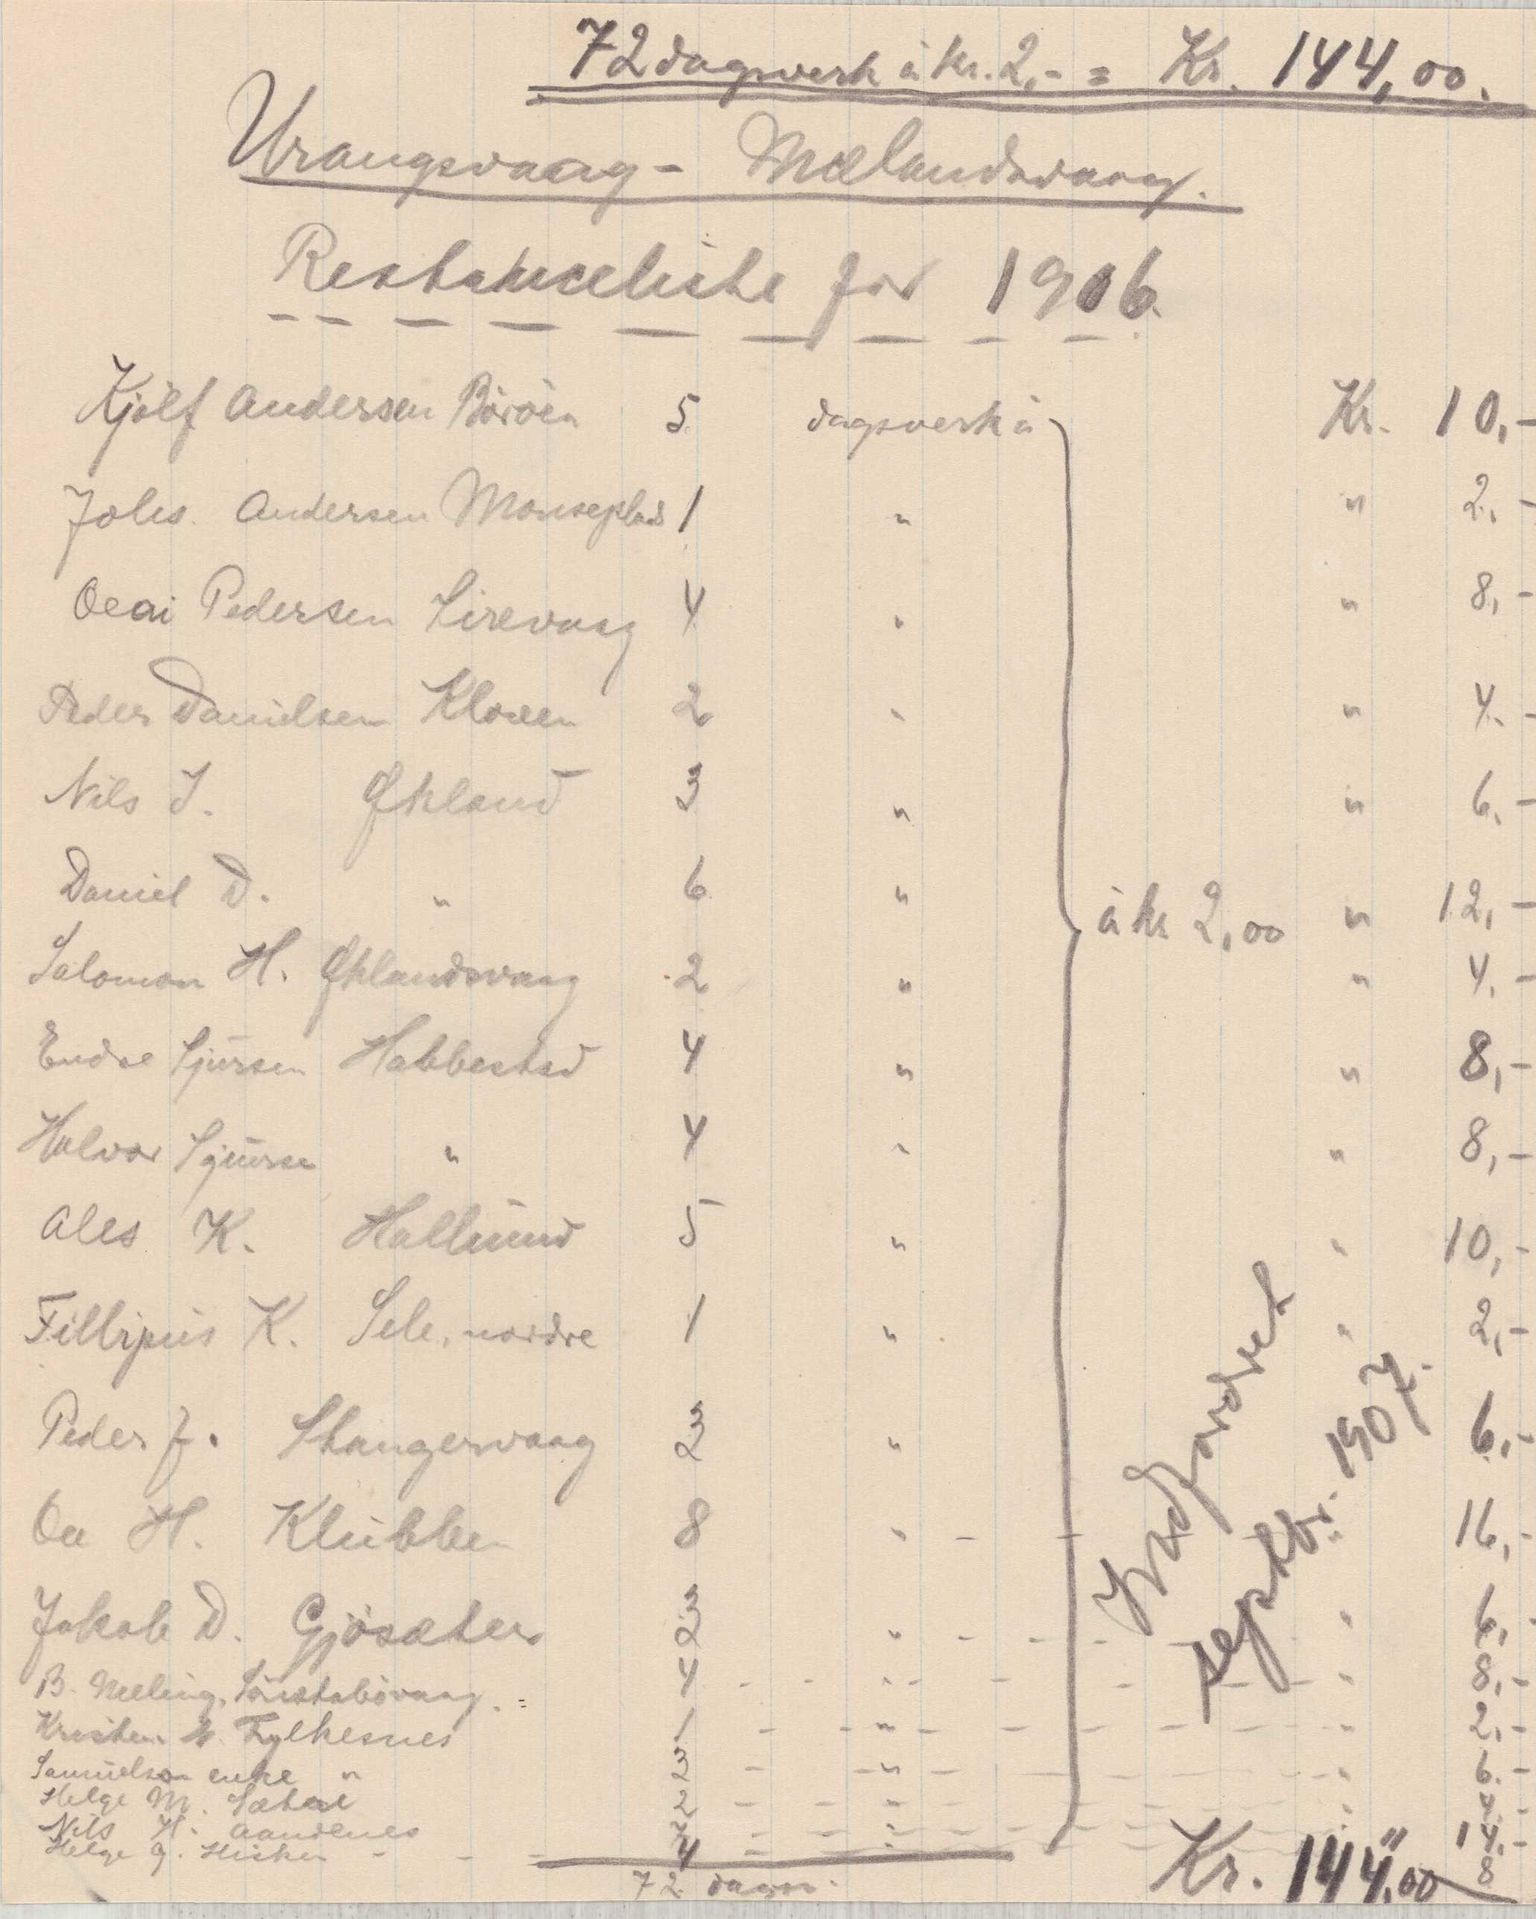 72 dagsverk à kr. 2,- = Kr. 144,00.
Urangsvaag - Mælandsvaag.
Restanceliste for 1906.
Kjølf Andersen Böröen 5 dagsverk à Kr. 10,-
Johs. Andersen Monseplads 1 " " 2,-
Pedersen Sirevaag 4 " " 8,-
Peder Danielsen Kloven 2 " " 4.-
Nils J. Økland 3 " " 6,-
Daniel D. " 6 " à kr 2,00 " 12,-
Salomon H. Øklandsvaag 2 " " 4.-
Endre Sjursen Habbestad 4 " " 8,-
Halvor Sjursen " 4 " " 8,-
K. 5 " " 10,-
Fillipus K. Sele, nordre 1 " " 2,-
Peder J. Stangervaag 3 " " 6,-
H. Klubben 8 " - - " 16,-
Jakob D. Gjøsæter 3 " - - - " 6,-
B. Meling, 4 " " 8,-
Kristen M. Fylkesnes 1 " " 2,-
Samuelson enke " 3 " " 6.-
Helge M. Sætre 2 " " 4.-
Nils H. Aandenes " " 14.-
Helge J. 4 8
72 dagsv. Kr. 144,00
Indfordret
septbr. 1907.